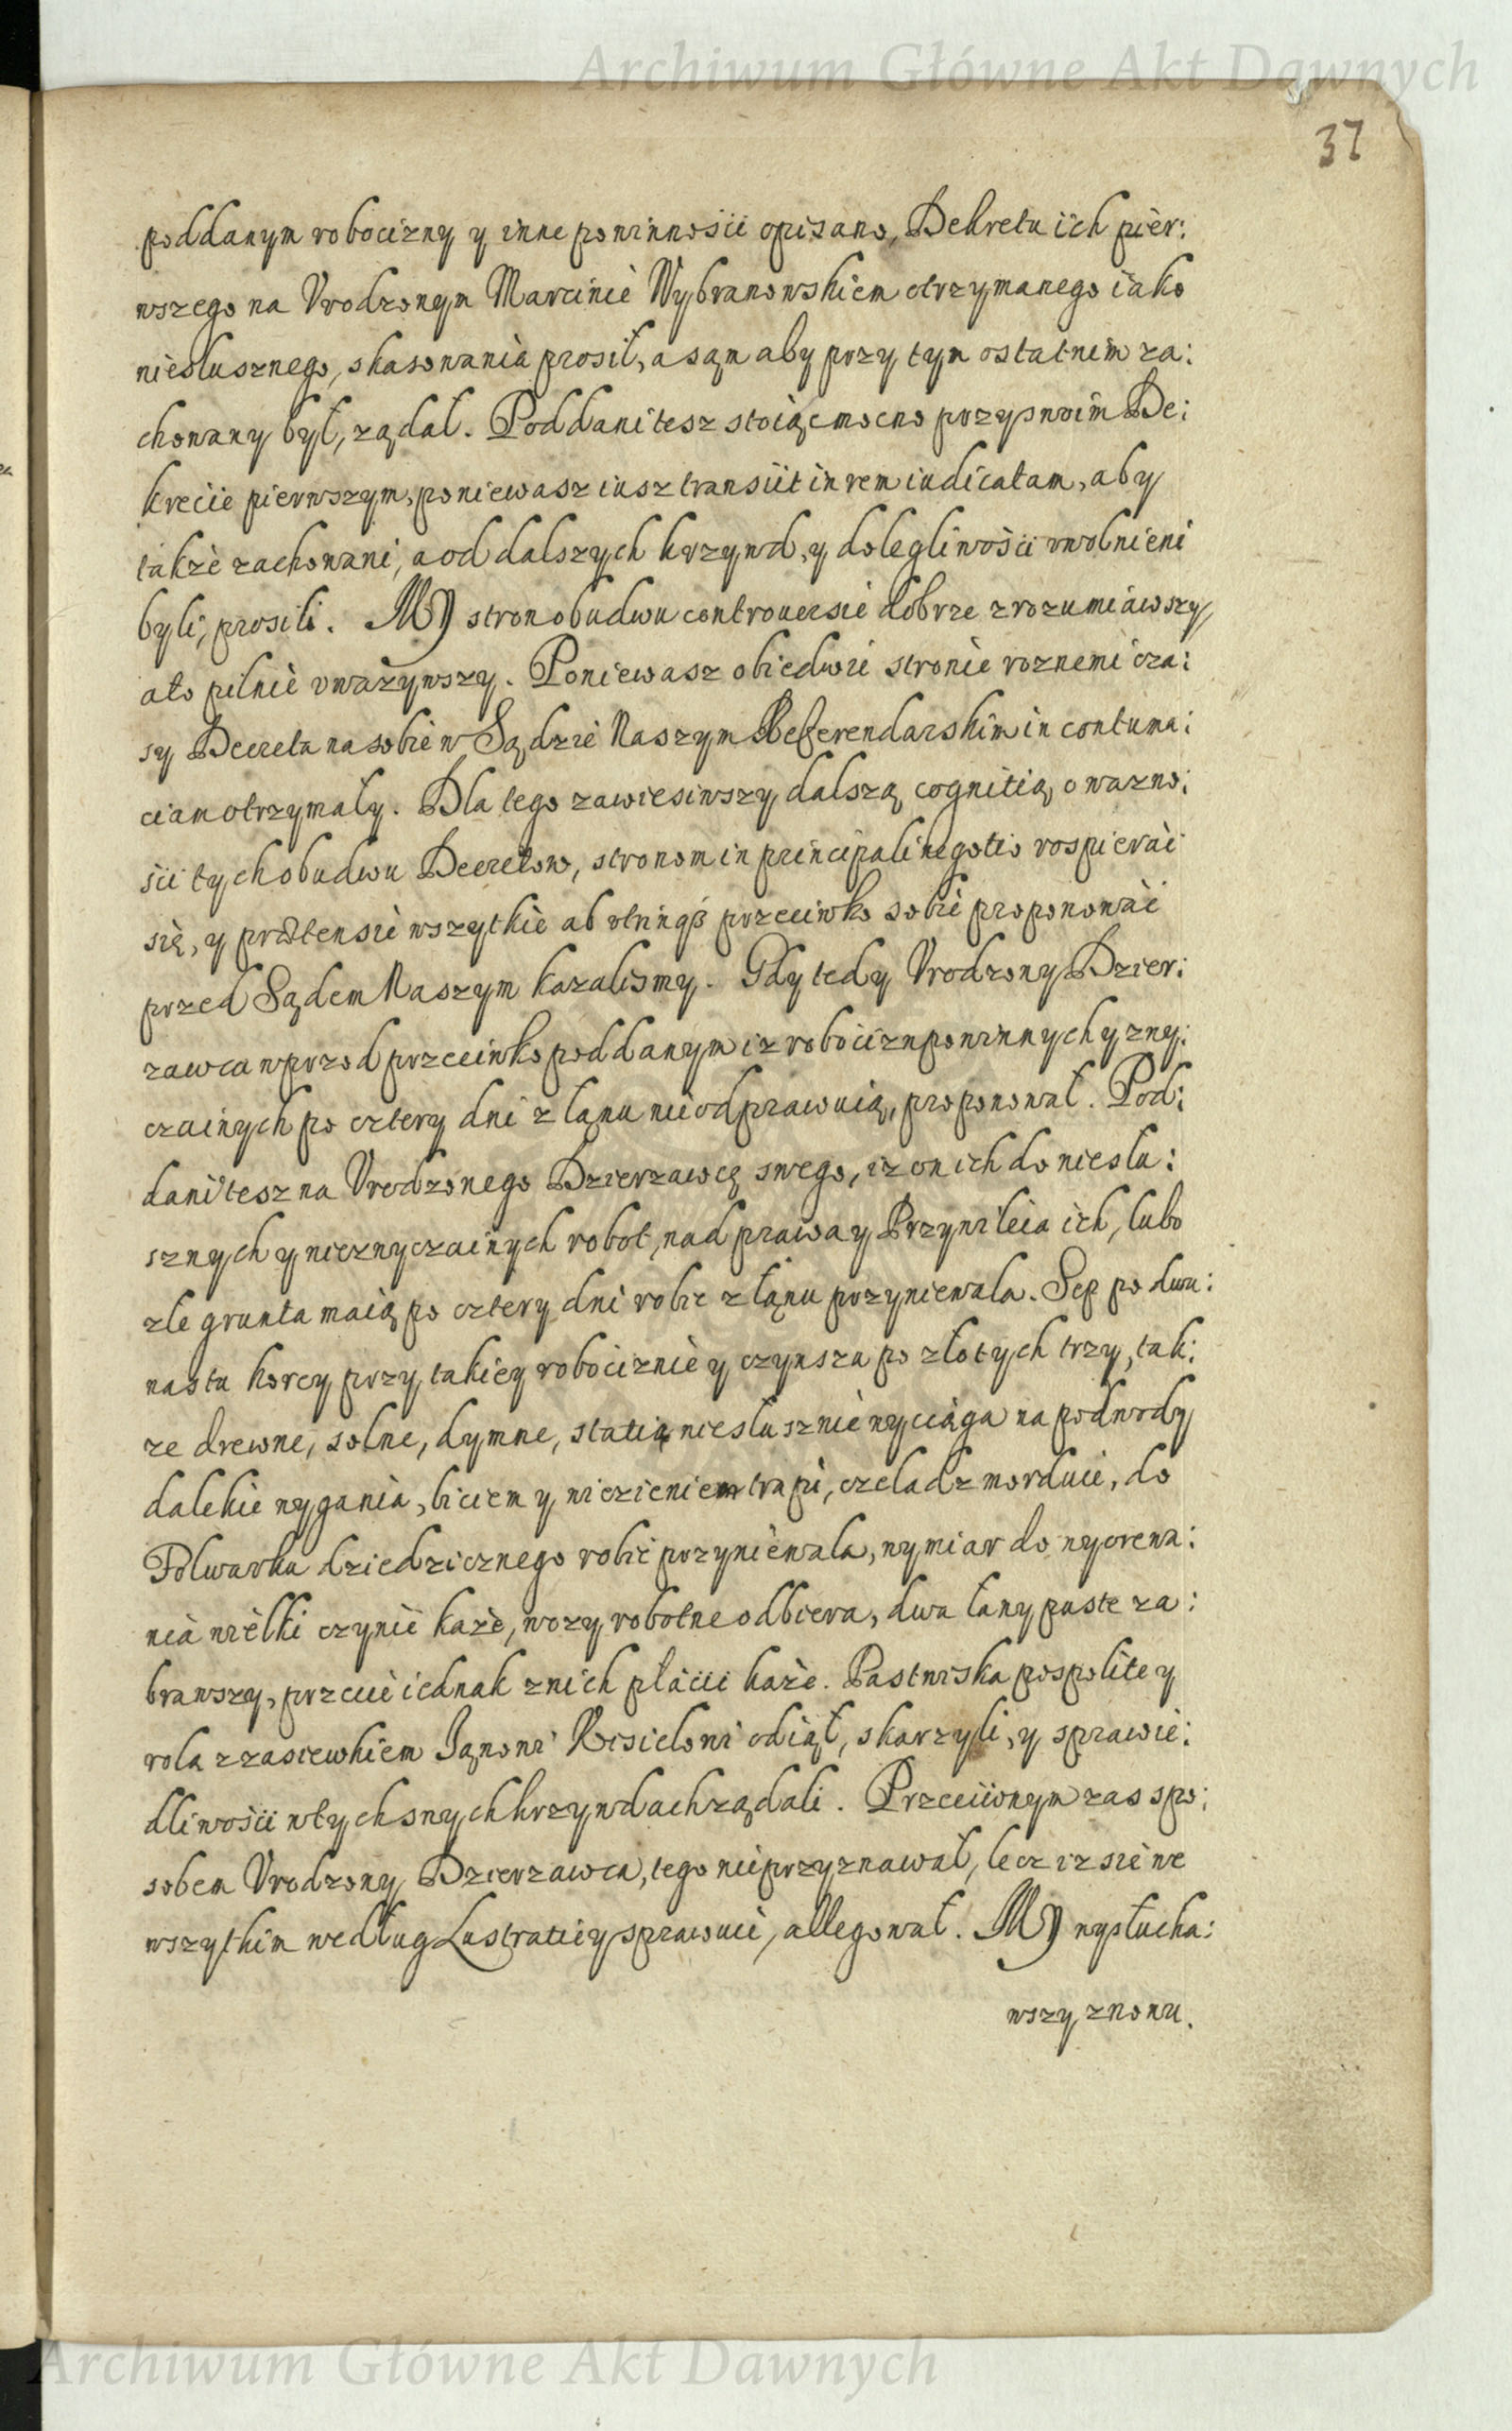 Archiwum Główne Akt Dawnych
37
poddanym robocizny y inne powinnosci opisano, Dekretu ich pier:
wszego na Vrodzonym Marcinie Wybranowskiem otrzymanego iako
niesłusznego, skasowania prosił, a sąm aby przy tym ostatnim za:
chowany był, ządał. Poddani tesz stoiąc mocno przy swoim De:
krecie pierwszym, poniewasz iusz transiit in rem iudicatam, aby
także zachowani, a od dalszych krzywd, y dolegliwości vwolnieni
byli, prosili. My stron obudwu controuersie dobrze zrozumiawszy,
a to pilnie vważywszy. Poniewasz obiedwie stronie roznemi cza:
sy Decreta na sobie w Sądzie Naszym Referendarskim in contuma:
ciam otrzymały. Dla tego zawiesiwszy dalszą cognitią o wazno:
ści tych obudwu Decretow, stronom in principali negotio rospierać
się, y prætensie wszytkie ab utrinqȝ przeciwko sobie proponować
przed Sądem Naszym kazalismy. Gdy tedy Vrodzony Dzier:
zawca wprzod przeciwko poddanym iz robocizn powinnych y zwy:
czainych po cztery dni z łanu nie odprawuią, proponował. Pod:
dani tesz na Vrodzonego Dzierzawcę swego, iz on ich do niesłu:
sznych y niezwyczainych robot, nad prawa y Przywileia ich, lubo
złe grunta maią po cztery dni robic z łąnu przyniewala. Sep po dwu:
nastu korcy przy takiey robociznie y czynszu po złotych trzy, tak:
ze drewne, solne, dymne, statią niesłusznie wyciąga na podwody
dalekie wygania, biciem y wiezieniem trapi, czeladz morduie, do
Folwarku dziedzicznego robic przyniewala, wymiar do wyorewa:
nia wielki czynić każe, wozy robotne odbiera, dwa łany puste za:
brawszy, przecie iednak z nich płacic każe. Pastwiska pospolite y
rola z zasiewkiem Iąnowi Kisielowi odiął, skarzyli, y sprawie:
dliwości w tych swych krzywdach ządali. Przeciwnym zas spo:
sobem Vrodzony Dzierzawca, tego nie przyznawał, lecz iz się we
wszytkim według Lustratiey sprawuie, allegował. My wysłucha:
wszy znowu.
Archiwum Główne Akt Dawnych